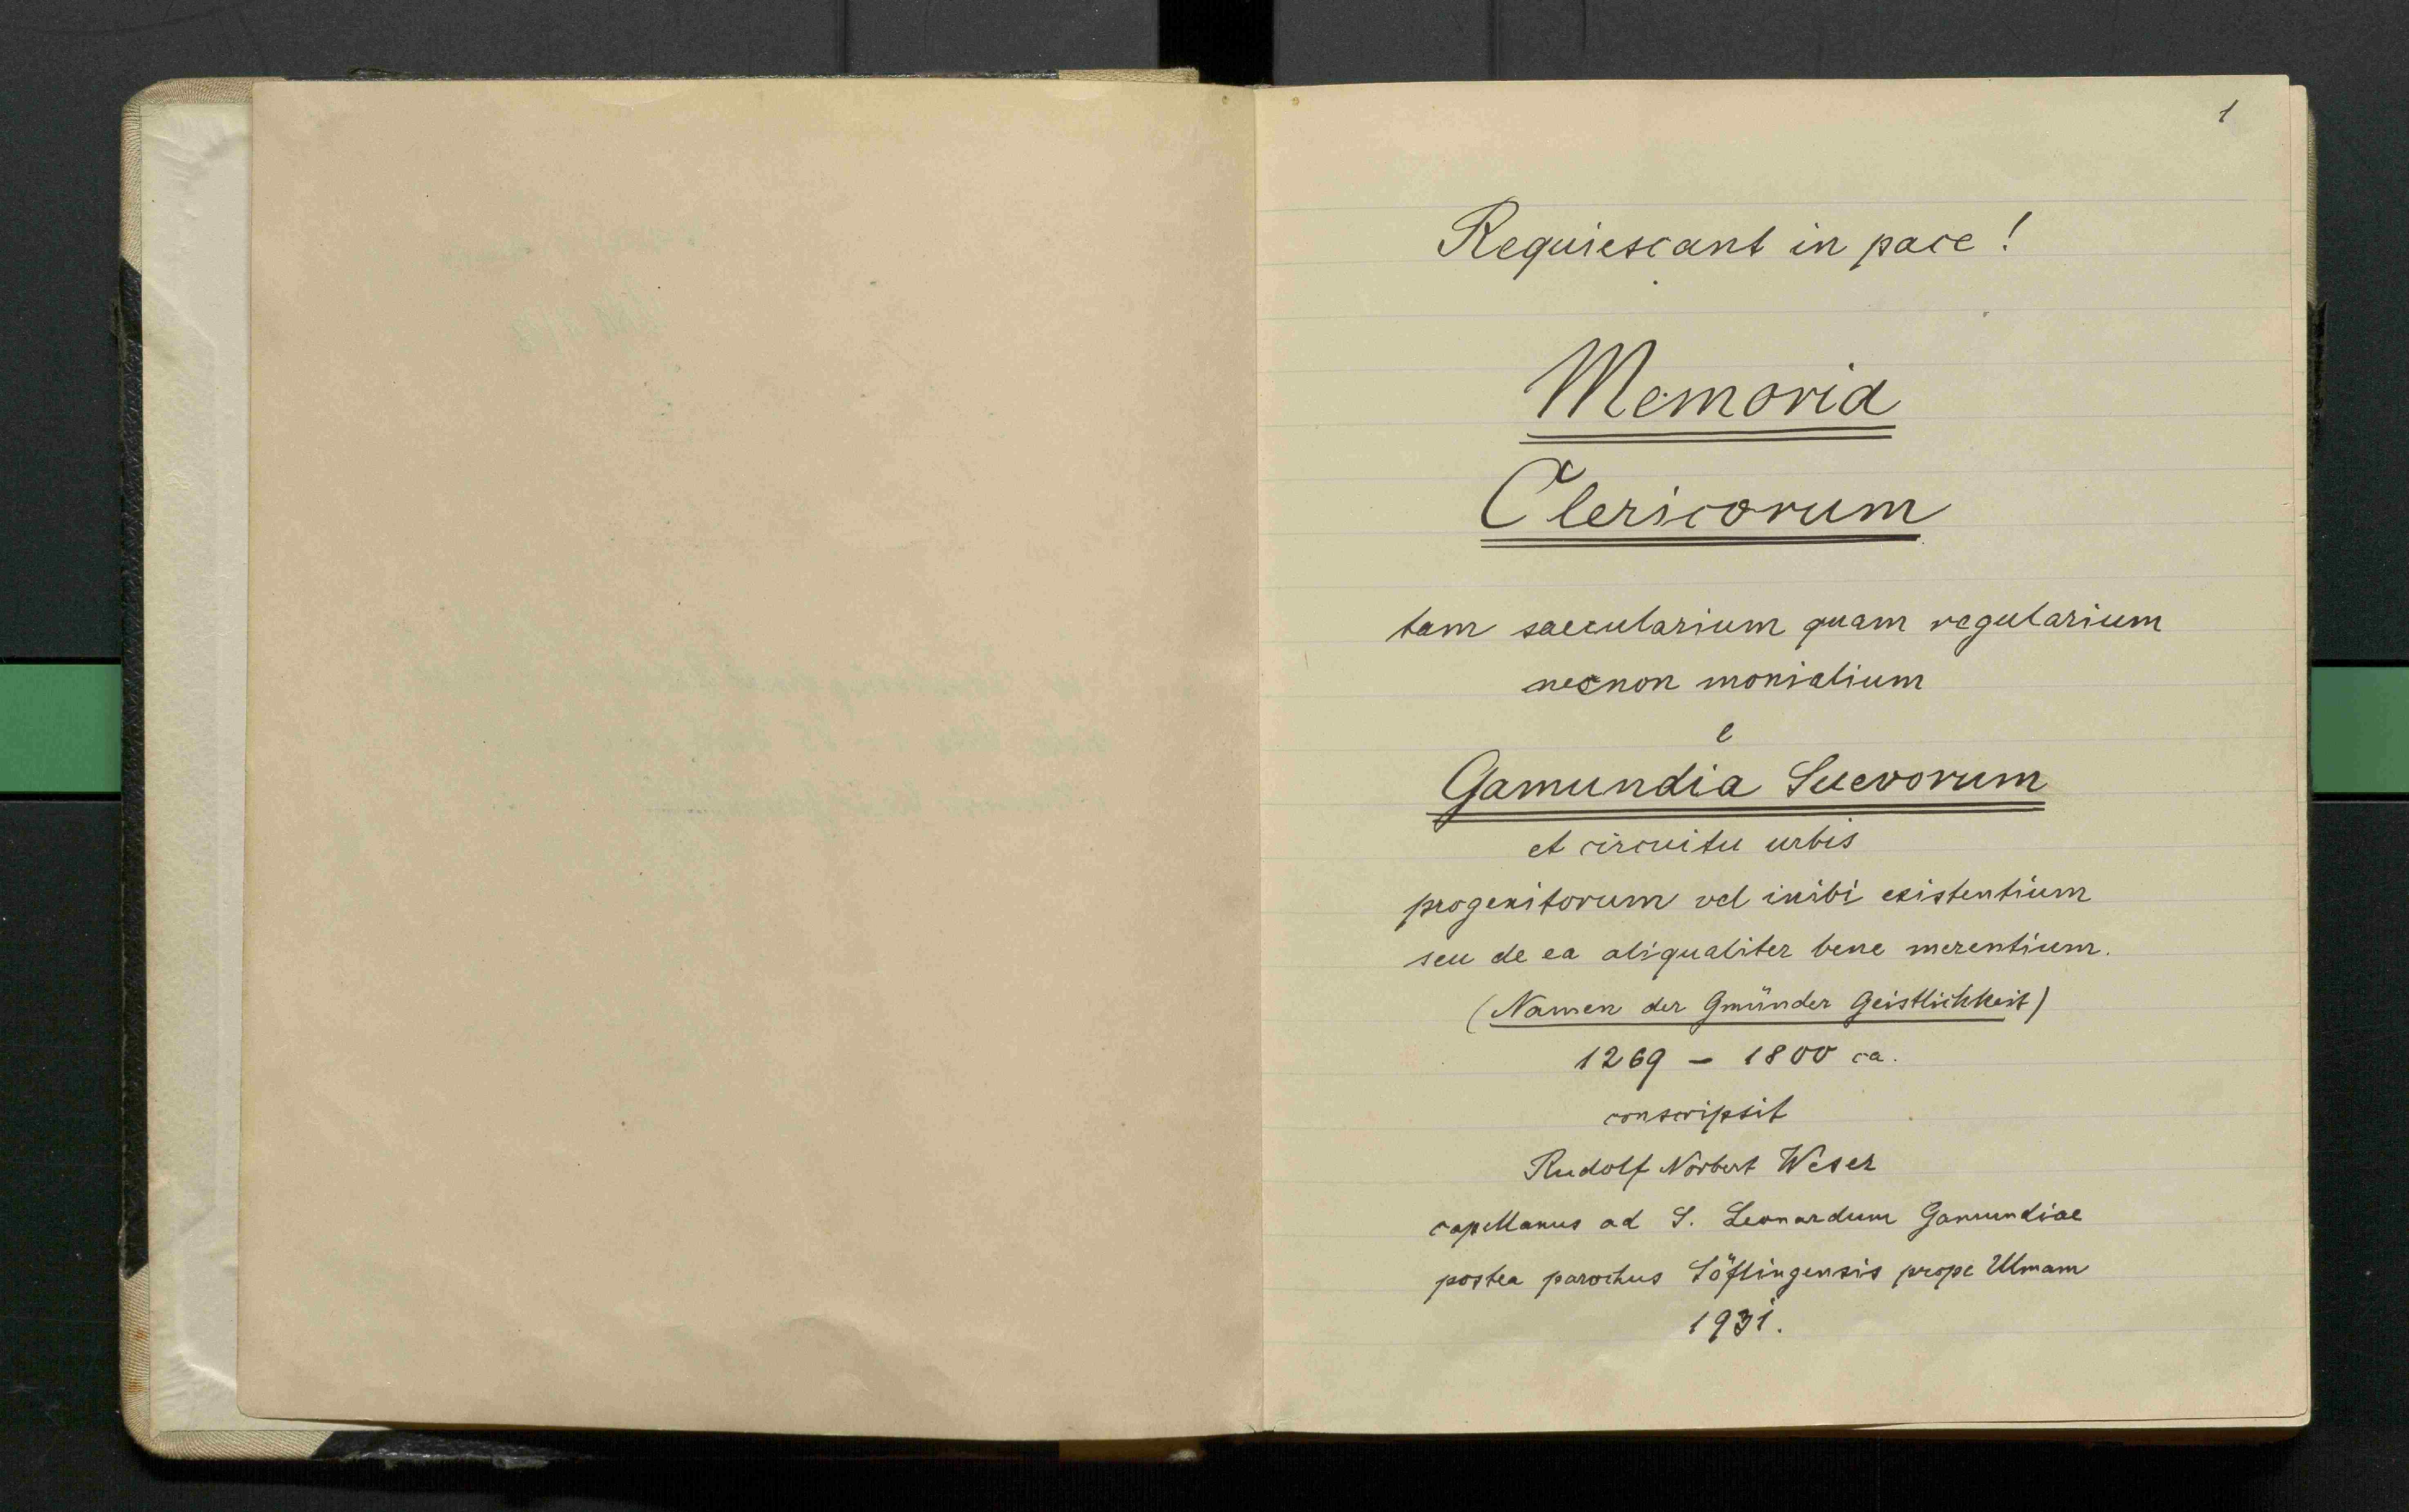 1
Requiescant in pace !
Memoria
Clericorum
tam saecularium quam regularium
necnon monialium
e
Gamundia Suevorum
et circuitu urbis
progenitorum vel inibi existentium
seu de ea aliqualiter bene merentium.
(Namen der Gmünder Geistlichkeit)
1269 – 1800 ca.
conscripsit
Rudolf Norbert Weser
capellanus ad S. Leonardum Gamundiae
postea parochus Söflingensis prope Ulmam
1931.